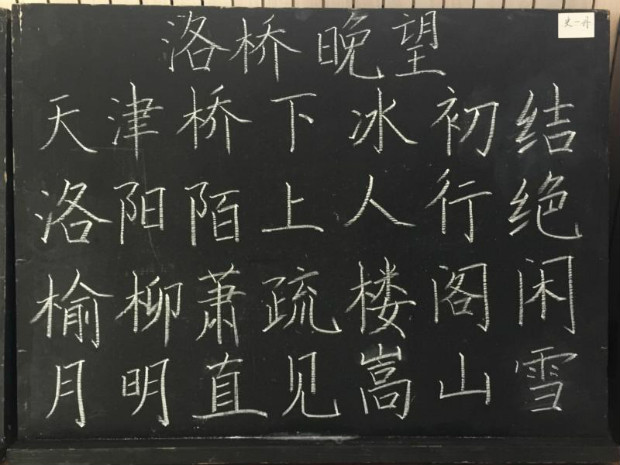 洛桥晚望
天津桥下冰初结
洛阳陌上人行绝
榆柳萧疏楼阁闲
月明直见嵩山雪